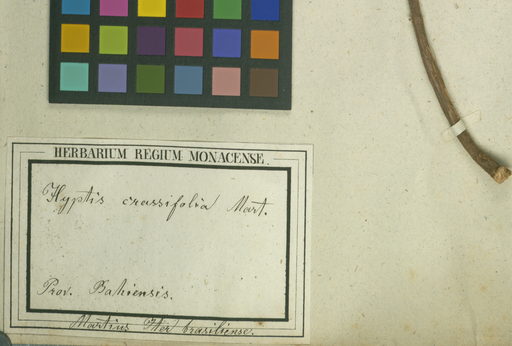 HERBARIUM REGIUM MONACENSE.
Hyptis crassifolia Mart.
Prov. Bahiensis.
Martius Iter brasiliense.